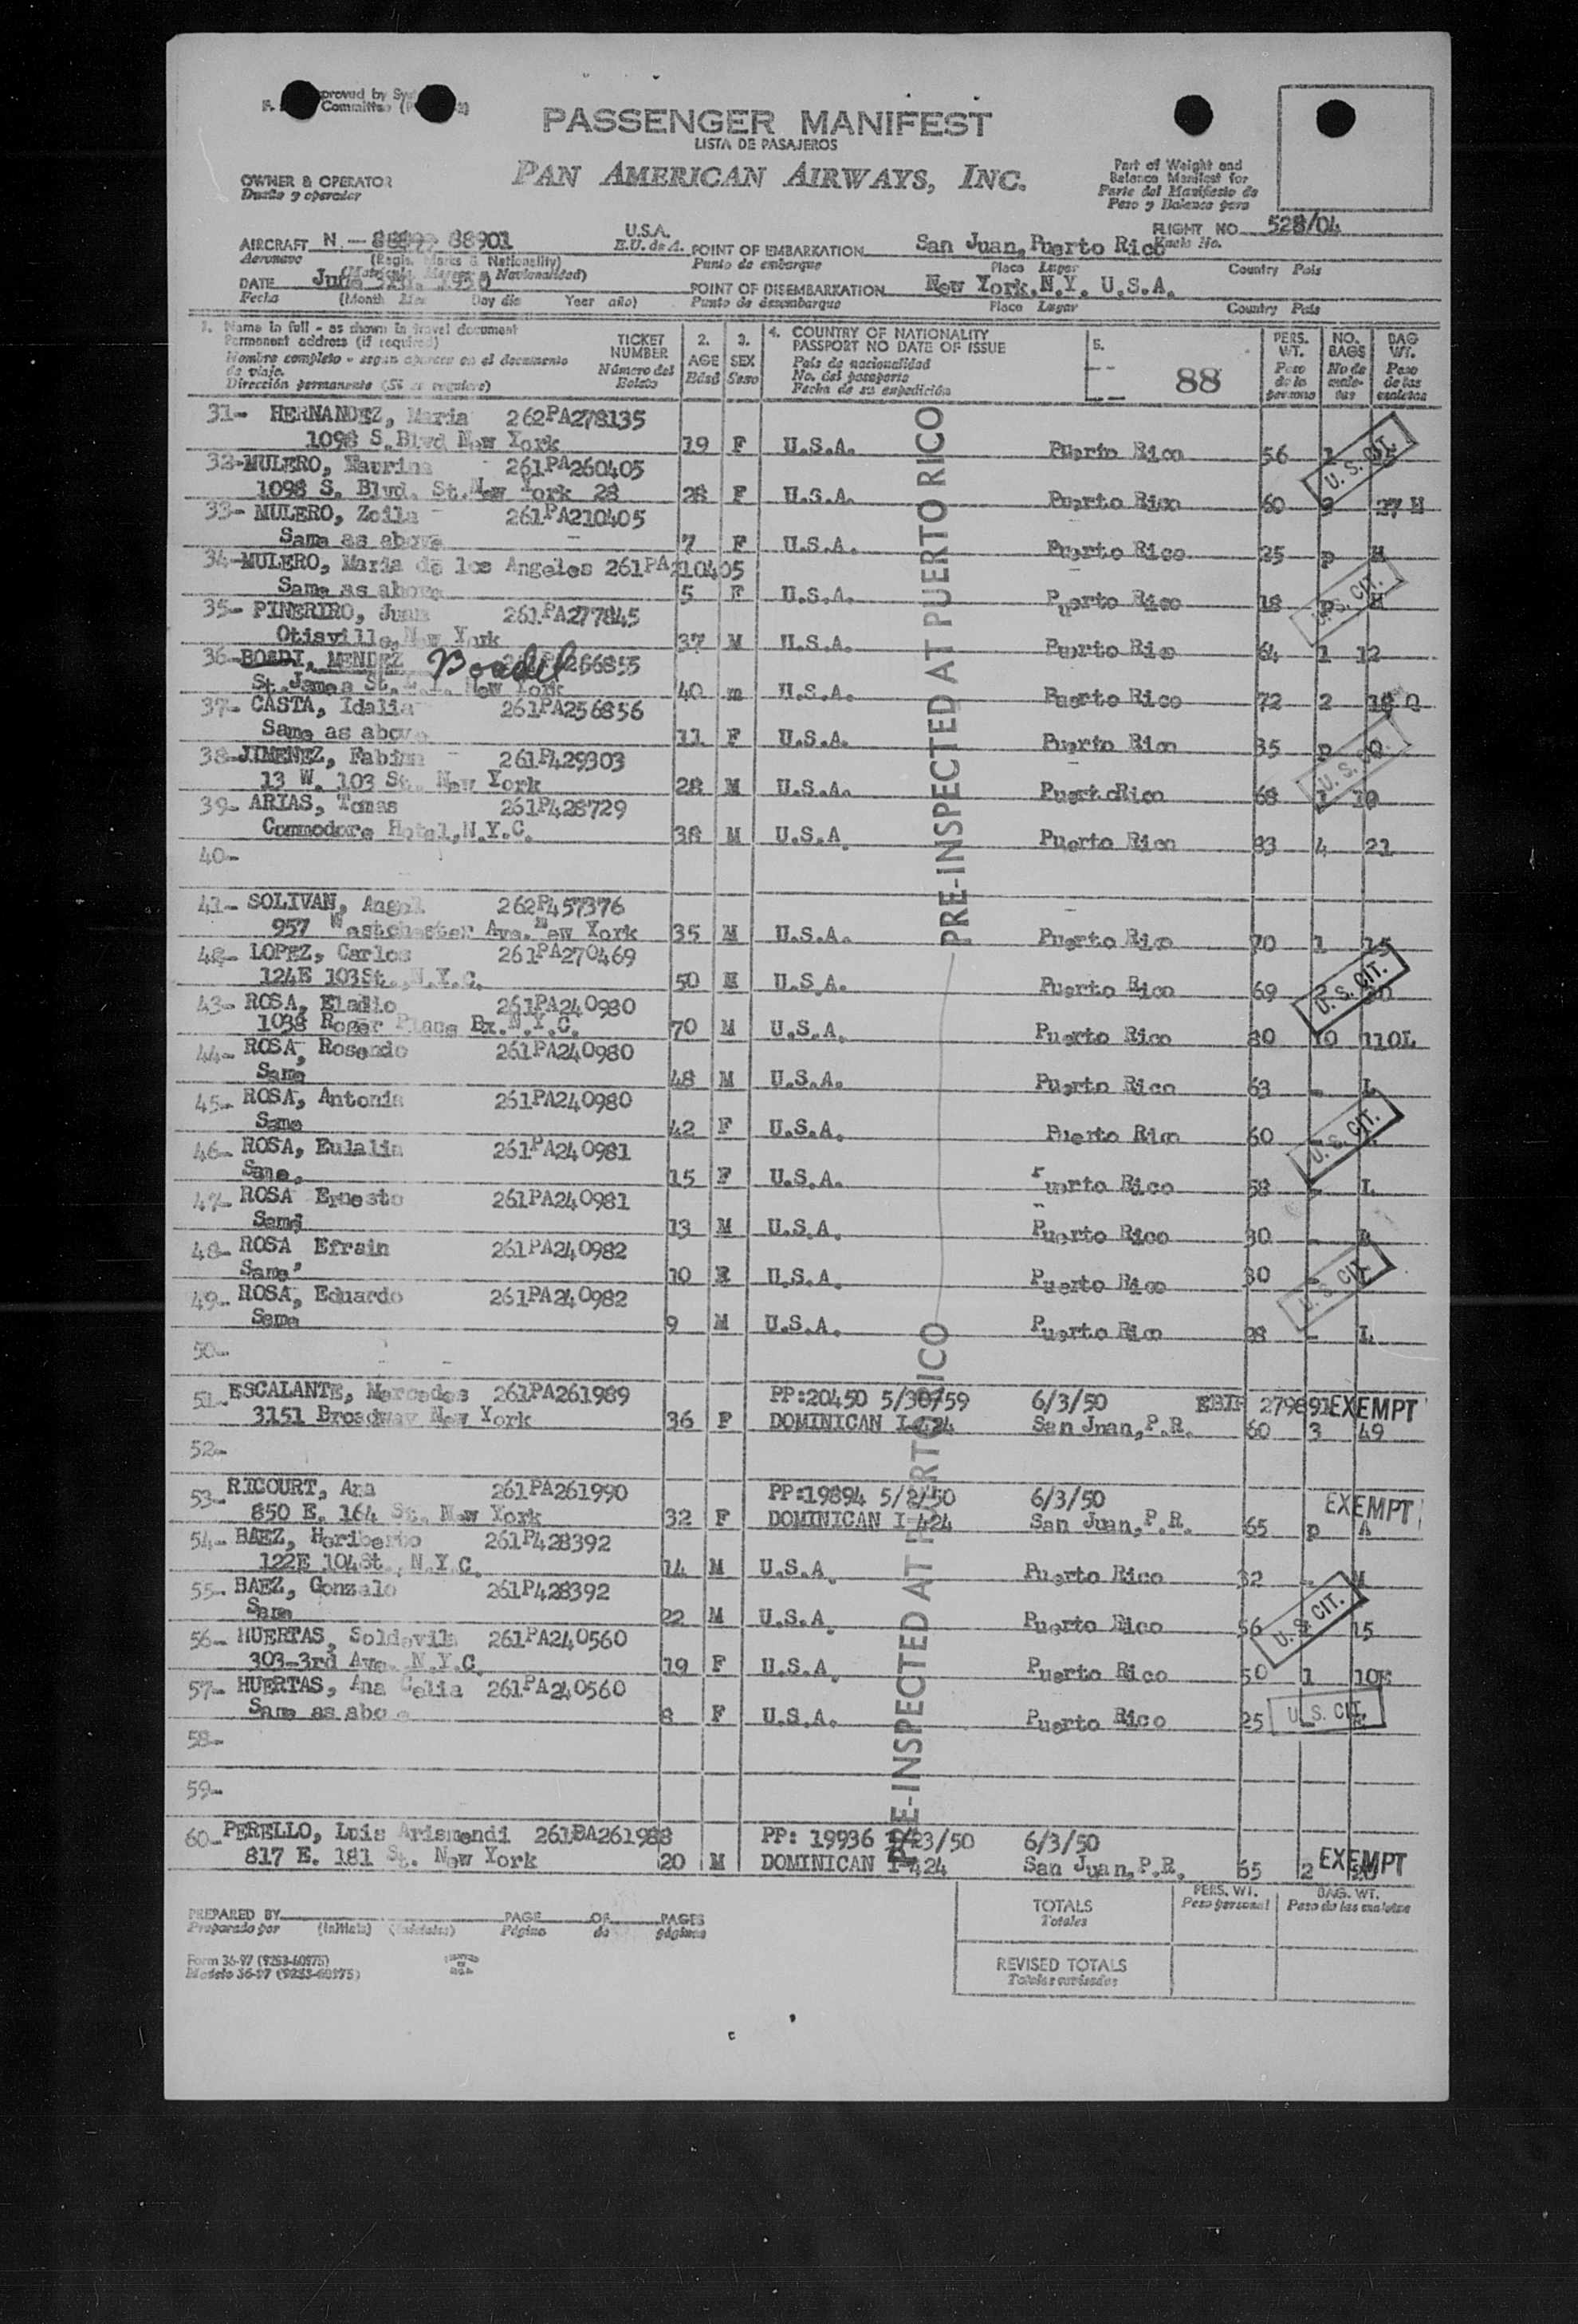 PASSENGER MANIFEST
LISTA DE PASAJEROS
PAN AMERICAN AIRWAYS, INC.
OWNER & OPERATOR
Dueño y operador
Part of Weight and
Balance Manifest for
Parte del Manifiesto de
Peso y Balance para
FLIGHT NO. 528/04
AIRCRAFT N - 88901
U.S.A.
E.U. de A.
POINT OF EMBARKATION San Juan, Puerto Rico
Aeronave
Punto de embarque
Place Lugar
Country País
DATE
POINT OF DISEMBARKATION New York, N.Y. U.S.A.
Fecha (Month Mes Day día Year año)
Punto de desembarque
Place Lugar
Country País
1. Name in full - as shown in travel document
Permanent address (if required)
Hombre completo - segun aparece en el documento
de viaje.
Dirección permanente (Si se requiere)
TICKET
NUMBER
Número del
Boleto
2.
AGE
Edad
3.
SEX
Sexo
4. COUNTRY OF NATIONALITY
PASSPORT NO DATE OF ISSUE
País de nacionalidad
No. del pasaporte
Fecha de su expedición
5.
88
PERS.
WT.
Peso
de la
persona
NO.
BAGS
No de
male-
tas
BAG
WT.
Peso
de las
maletas
31- HERNANDEZ, Maria 262PA278135
1098 S. Blvd New York 19 F U.S.A. Puerto Rico 56 1
32- MULERO, 261PA260405
1098 S. Blvd. St. New York 28 28 F U.S.A. Puerto Rico 60 27 H
33- MULERO, Zoila 261PA210405
Same as above 7 F U.S.A. Puerto Rico 25 p H
34- MULERO, Maria de los Angeles 261PA210405
Same as above 5 F U.S.A. Puerto Rico 18 p H
35- PINERIRO, Juan 261PA277845
Otisville, New York 37 M U.S.A. Puerto Rico 64 1 12
36- BOADI, MENDEZ Boadel
St. James St. New York 40 m U.S.A. Puerto Rico 72 2 18 Q
37- CASTA, Idalia 261PA256856
Same as above 11 F U.S.A. Puerto Rico 35 p Q
38- JIMENEZ, Fabian 261P429303
13 W. 103 St. New York 28 M U.S.A. Puerto Rico 68 1 10
39- ARIAS, Tomas 261P428729
Commodore Hotel, N.Y.C. 38 M U.S.A. Puerto Rico 83 4 21
40-
41- SOLIVAN, Angel 262P457376
957 Westchester Ave. New York 35 M U.S.A. Puerto Rico 70 1 15
42- LOPEZ, Carlos 261PA270469
124E 103St., N.Y.C. 50 M U.S.A. Puerto Rico 69
43- ROSA, Eladio 261PA240980
1038 Roger Place Bx. N.Y.C. 70 M U.S.A. Puerto Rico 80 10 110L
44- ROSA, Rosendo 261PA240980
Same 48 M U.S.A. Puerto Rico 63 - L
45- ROSA, Antonia 261PA240980
Same 42 F U.S.A. Puerto Rico 60 -
46- ROSA, Eulalia 261PA240981
Same. 15 F U.S.A. Puerto Rico 58 - L
47- ROSA Ernesto 261PA240981
Same 13 M U.S.A. Puerto Rico 30 -
48- ROSA Efrain 261PA240982
Same 10 U.S.A. Puerto Rico 30 -
49- ROSA, Eduardo 261PA240982
Same 9 M U.S.A. Puerto Rico 28 - L
50-
51- ESCALANTE, Mercedes 261PA261989 PP:20450 6/3/50 279891 EXEMPT
3151 Broadway New York 36 F DOMINICAN I-424 San Juan, P.R. 60 3 49
52-
53- RICOURT, Ana 261PA261990 PP:19894 5/2/50 6/3/50 EXEMPT
850 E. 164 St. New York 32 F DOMINICAN I-424 San Juan, P.R. 65 p A
54- BAEZ, Heriberto 261P428392
122E 104St., N.Y.C. 14 M U.S.A. Puerto Rico 32 -
55- BAEZ, Gonzalo 261P428392
Same 22 M U.S.A. Puerto Rico 56 15
56- HUERTAS, Soldevila 261PA240560
303-3rd Ave. N.Y.C. 19 F U.S.A. Puerto Rico 50 1 10E
57- HUERTAS, Ana Celia 261PA240560
Same as abo e 8 F U.S.A. Puerto Rico 25
58-
59-
60- PERELLO, Luis Arismendi 261BA261988 PP: 19936 6/3/50
817 E. 181 St. New York 20 M DOMINICAN I-424 San Juan, P.R. 65 2 EXEMPT
PRE-INSPECTED AT PUERTO RICO
PRE-INSPECTED AT PUERTO RICO
U. S. CIT.
U. S. CIT.
U. S. CIT.
U. S. CIT.
U. S. CIT.
U. S. CIT.
U. S. CIT.
U. S. CIT.
TOTALS
Totales
PERS. WT.
Peso personal
BAG. WT.
Peso de las maletas
REVISED TOTALS
Totales revisados
PREPARED BY
Preparado por (Initials) (Iniciales)
PAGE OF PAGES
Página de páginas
Form 36-97 (9253-60975)
Modelo 36-97 (9253-60975)